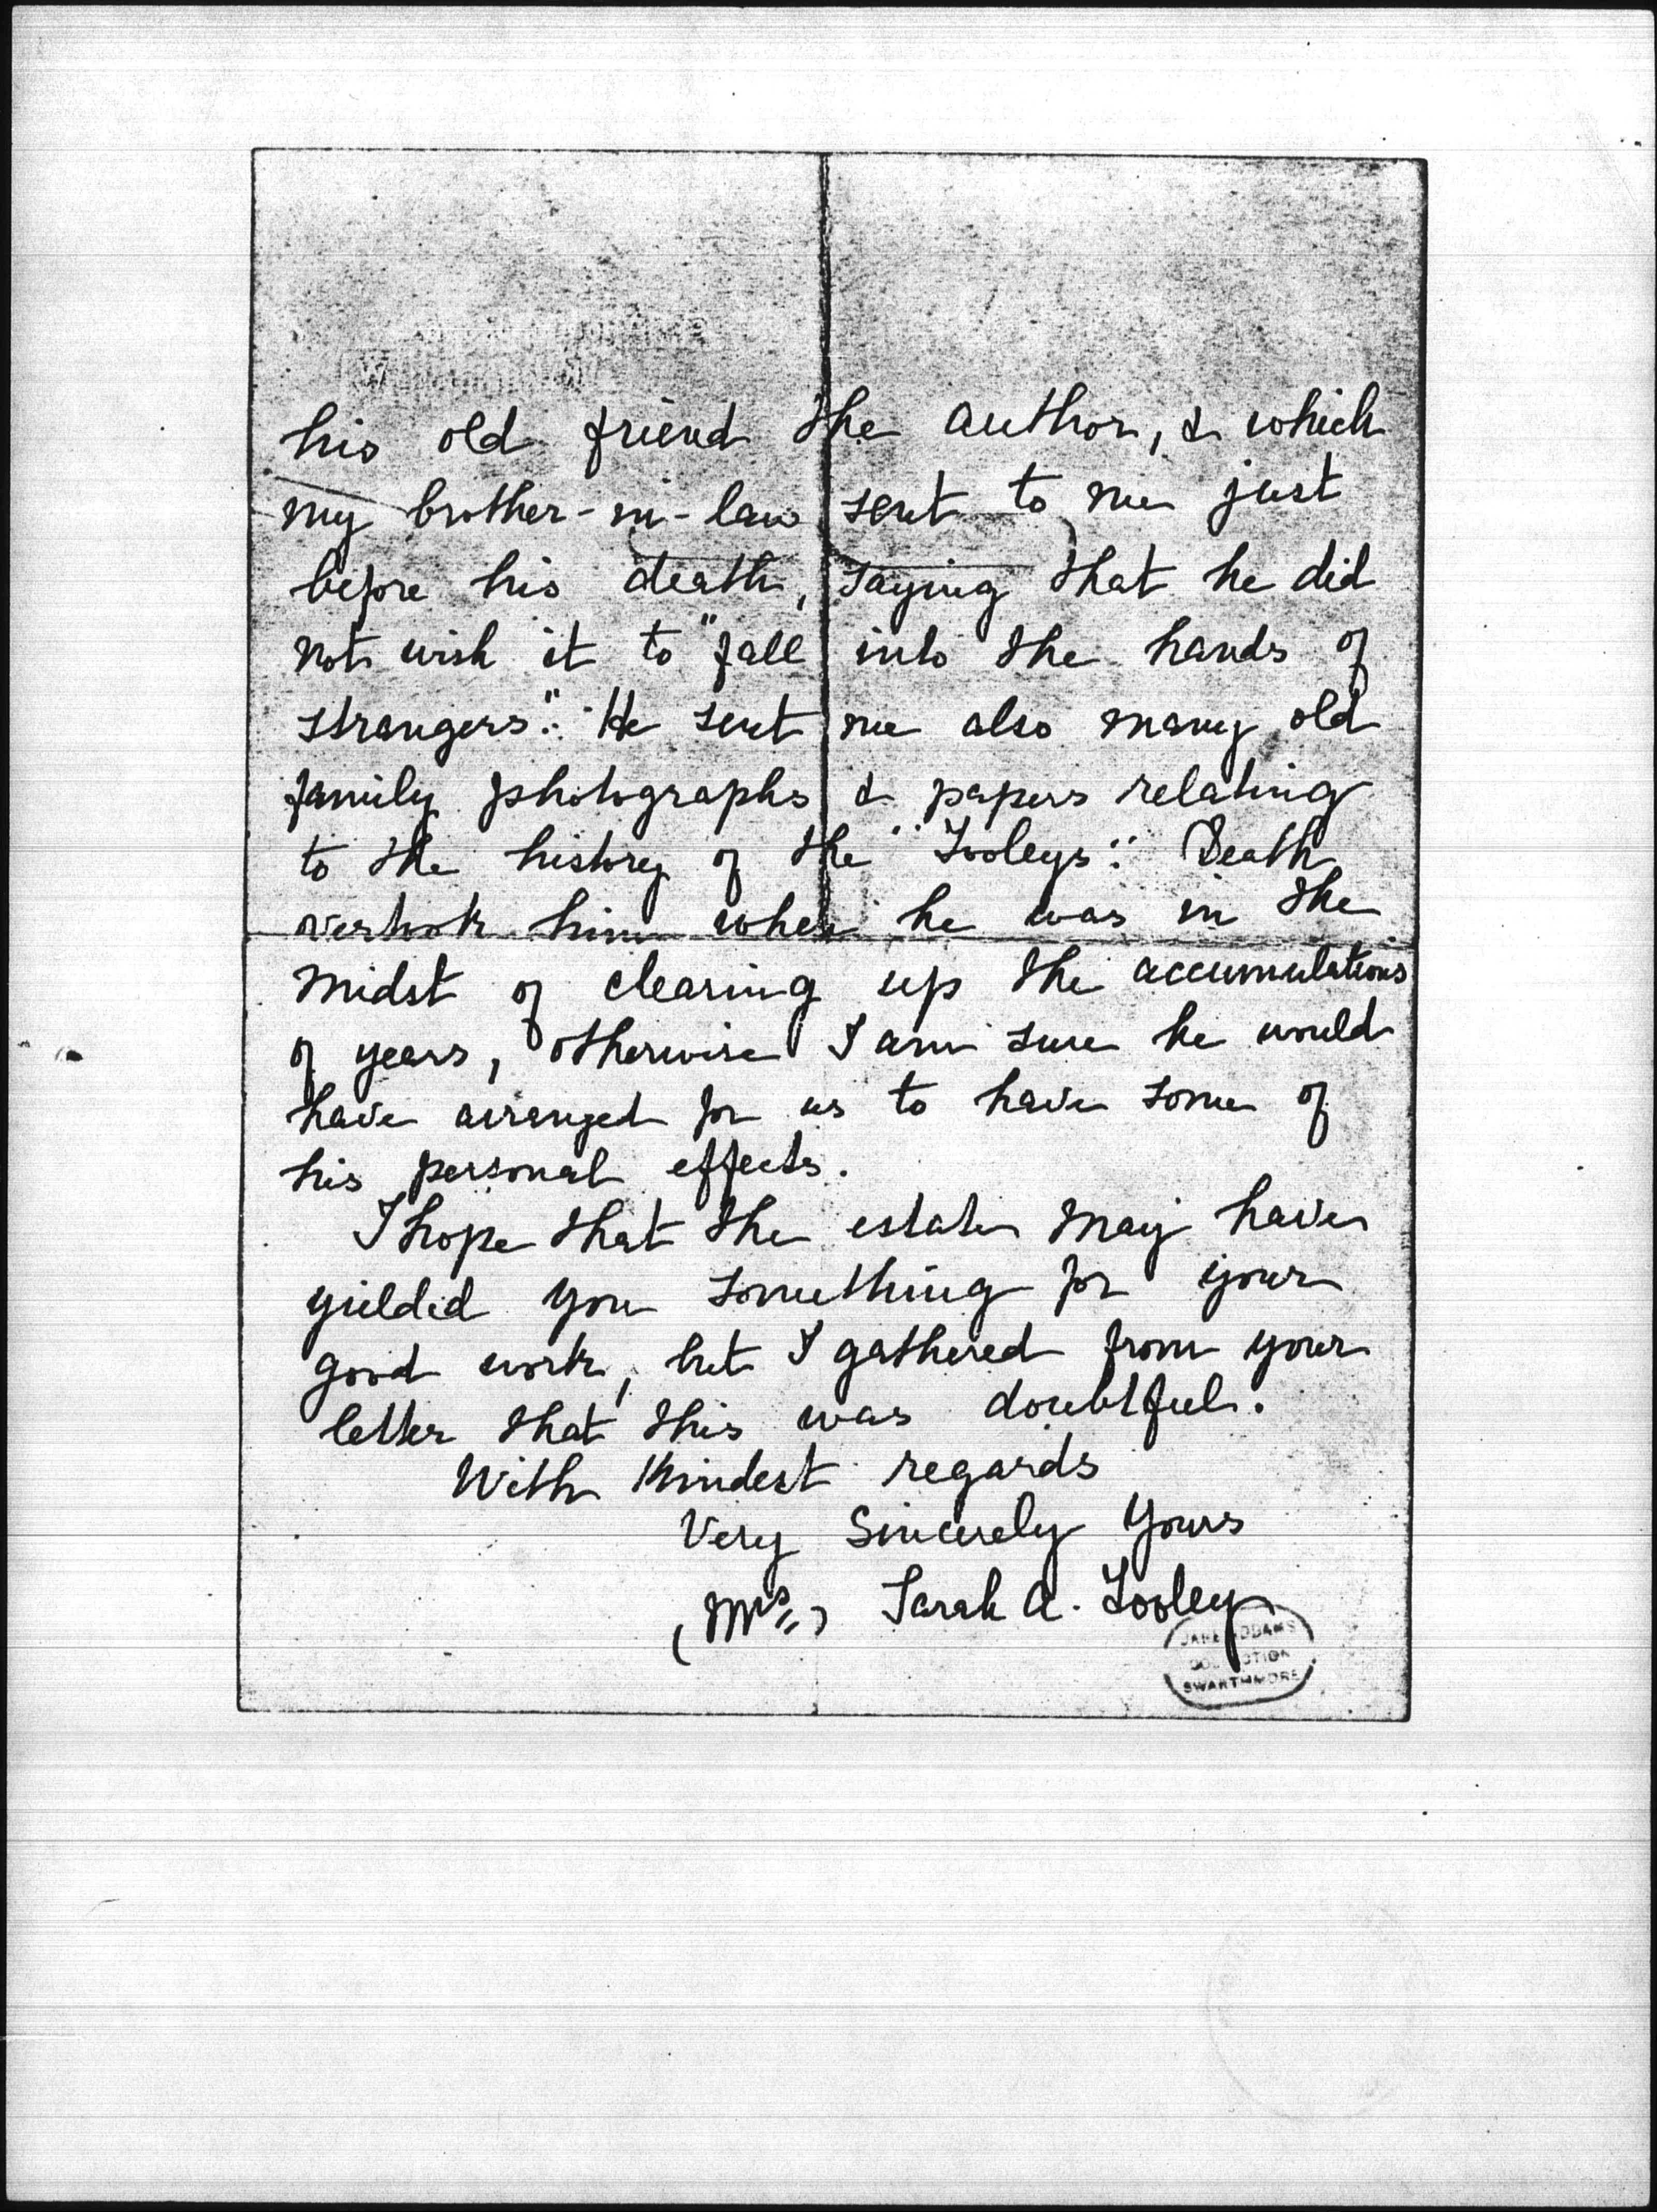 his old friend the author, & which
my brother-in-law sent to me just
before his death, saying that he did
not wish it to "fall into the hands of
strangers". He sent me also many old
family photographs & papers relating
to the history of the "Tooleys". Death
overtook him when he was in the
midst of clearing up the accumulations
of years, otherwise I am sure he would
have arranged for us to have some of
his personal effects.
I hope that the estate may have
yielded you something for your
good work, but I gathered from your
letter that this was doubtful.
With kindest regards
Very Sincerely Yours
(Mrs) Sarah A. Tooley
JANE ADDAMS
COLLECTION
SWARTHMORE